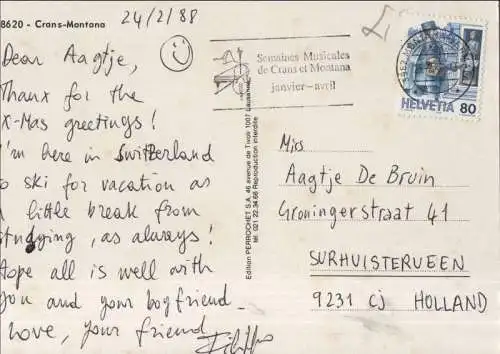 8620 - Crans-Montana
24/2/88
Dear Aagtje,
Thanx for the
X-Mas greetings!
I'm here in Switzerland
to ski for vacation as
a little break from
studying, as always!
Hope all is well with
you and your boyfriend
Love, your friend
Semaines Musicales
de Crans et Montana
janvier-avril
HELVETIA 80
Edition PERROCHET S.A. 46 avenue de Tivoli 1007 Lausanne
tél. 021 22.34.66 Reproduction interdite
Miss
Aagtje De Bruin
Groningerstraat 41
SURHUISTERVEEN
9231 CJ HOLLAND